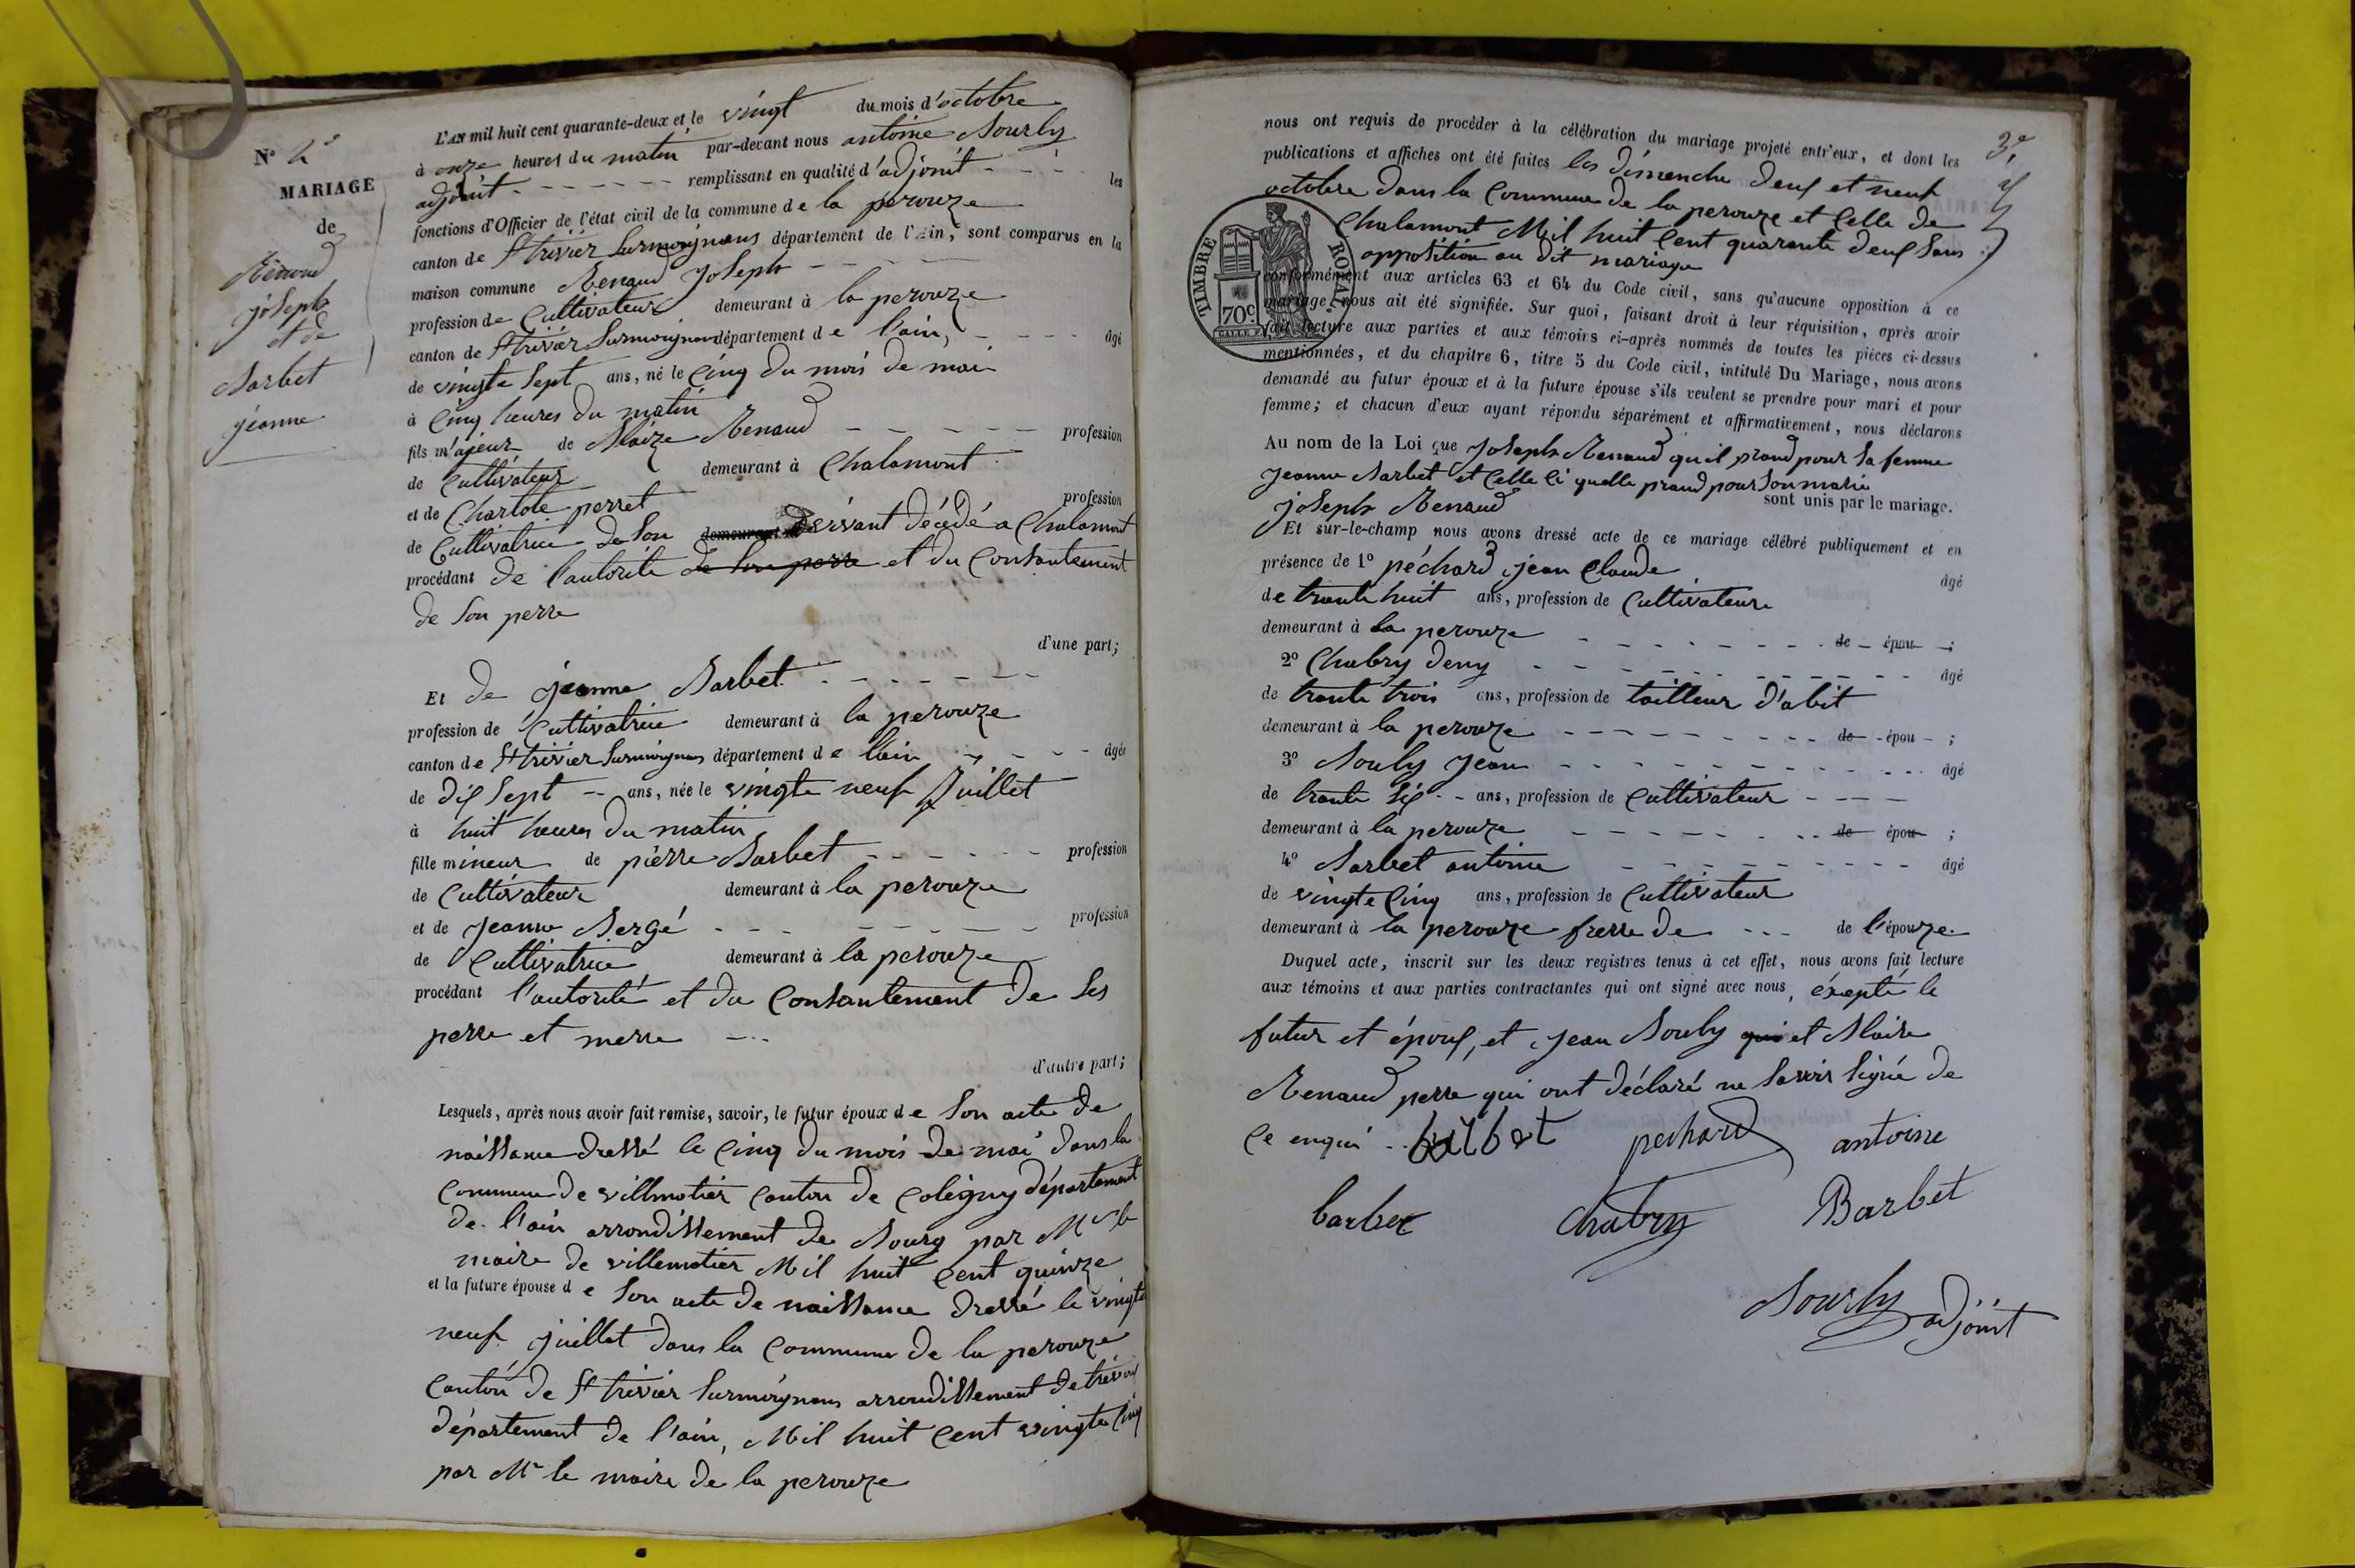 N° 4e
MARIAGE
de
Renaud
joseph
et de
Barbet
jeanne
L'AN mil huit cent quarante-deux et le vingt du mois d'octobre
à onze heures du matin par-devant nous antoine Bourly
adjoint - - - - - - remplissant en qualité d'adjoint - - - les
fonctions d'Officier de l'état civil de la commune de la perouze
canton de St trivier Surmoignans département de l'Ain, sont comparus en la
maison commune Renaud joseph - - - -
profession de Cultivateur demeurant à la perouze
canton de St trivier Surmoignans département de l'ain, - - - - âgé
de vingte Sept ans, né le Cinq du mois de mai
à Cinq heures du matin
fils majeur de Blaize Renaud - - - - - profession
de Cultivateur demeurant à Chalamont
et de Charlote perret profession
de Cultivatrice de Son demeurant vivant décédé a Chalamont
procédant de l'autorité de Son perre et du Consantement
de Son perre
d'une part;
Et de jeanne Barbet - - - - - - -
profession de Cultivatrice demeurant à la perouze
canton de St trivier Surmoignans département de l'ain - - - - âgée
de dix Sept -- ans, née le vingte neuf Juillet
à huit heures du matin
fille mineur de piérre Barbet - - - - - - profession
de Cultivateur demeurant à la perouze
et de Jeanne Bergé - - - - - - - - profession
de Cultivatrice demeurant à la perouze
procédant l'autorité et du Consantement de Ses
perre et merre - - -
d'autre part;
Lesquels, après nous avoir fait remise, savoir, le futur époux de Son acte de
naissance dressé le Cinq du mois de mai dans la
Commune de villmotier Canton de Coligny département
de l'ain arrondissement de Bourg par Mr le
maire de villemotier Mil huit Cent quinze
et la future épouse de Son acte de naissance dressé le vingte
neuf juillet dans la Commune de la perouze
Canton de St trivier Surmoignans arrondissement de trévoux
département de l'ain, Mil huit Cent vingte Cinq
par Mr le maire de la perouze
3e
nous ont requis de procéder à la célébration du mariage projeté entr'eux, et dont les
publications et affiches ont été faites les dimenche deux et neuf
octobre dans la Commune de la perouze et Celle de
Chalamont Mil huit Cent quarante deux Sans
opposition au dit mariage
TIMBRE ROYAL
70c.
conformément aux articles 63 et 64 du Code civil, sans qu'aucune opposition à ce
mariage nous ait été signifiée. Sur quoi, faisant droit à leur réquisition, après avoir
fait lecture aux parties et aux témoirs ci-après nommés de toutes les pièces ci-dessus
mentionnées, et du chapitre 6, titre 5 du Code civil, intitulé Du Mariage, nous avons
demandé au futur époux et à la future épouse s'ils veulent se prendre pour mari et pour
femme; et chacun d'eux ayant répondu séparément et affirmativement, nous déclarons
Au nom de la Loi que Joseph Renaud qu'il prand pour Sa femme
Jeanne Barbet et Celle Ci quelle prand pour Son marie
joseph Renaud sont unis par le mariage.
Et sur-le-champ nous avons dressé acte de ce mariage célébré publiquement et en
présence de 1° péchard jean Claude âgé
de trante huit ans, profession de Cultivateur
demeurant à la perouze - - - - - - - de - épou - ;
2° Chabry deny - - - - - - - - âgé
de trante trois ans, profession de tailleur d'abit
demeurant à la perouze - - - - - - - - de - épou - ;
3° Bouly Jean - - - - - - - - - âgé
de trante Six - - ans, profession de Cultivateur - - - -
demeurant à la perouze - - - - - - - de épou ;
4° Barbet antoine - - - - - - - - - âgé
de vingte Cinq ans, profession de Cultivateur
demeurant à la perouze frerre de - - - de l'épouze
Duquel acte, inscrit sur les deux registres tenus à cet effet, nous avons fait lecture
aux témoins et aux parties contractantes qui ont signé avec nous, éxepté le
futur et époux, et Jean Bouly qui et Blaise
Renaud perre qui ont déclaré ne Savoir Signé de
Ce enqui - - pechard antoine
barbet Chabry Barbet
Bourly adjoint